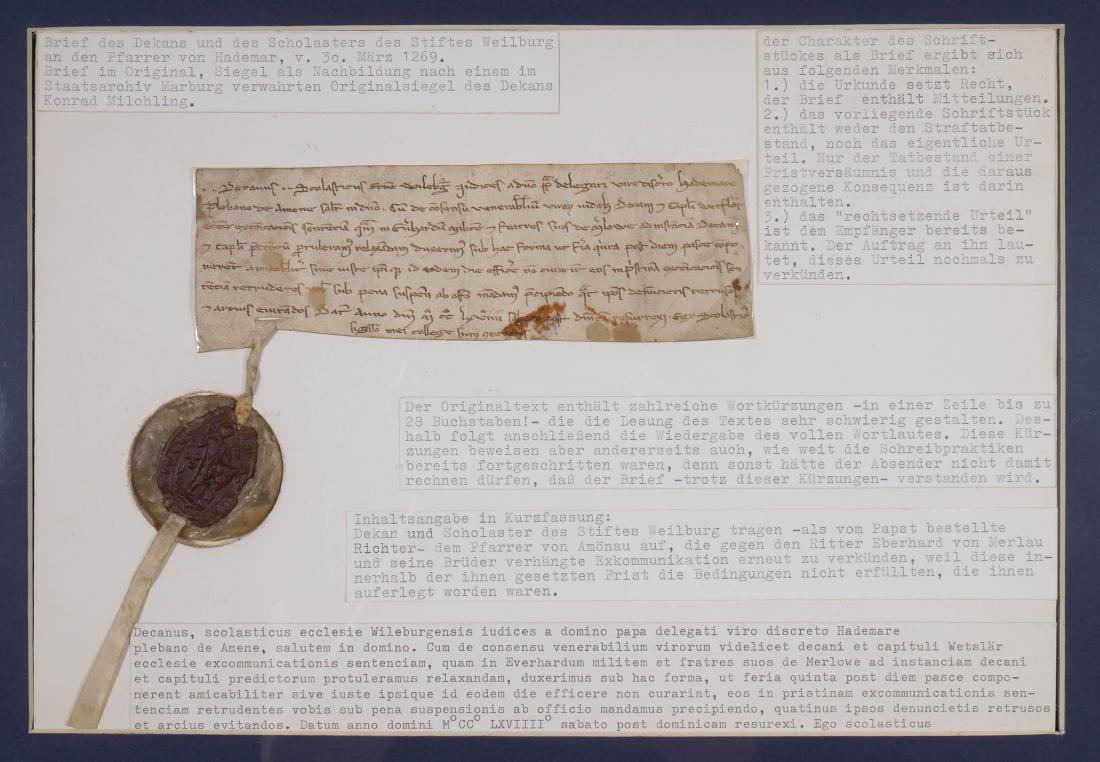 Brief des Dekans und des Scholasters des Stiftes Weilburg
an den Pfarrer von Hademar, v. 3o. März 1269.
Brief im Original, Siegel als Nachbildung nach einem im
Staatsarchiv Marburg verwahrten Originalsiegel des Dekans
Konrad Milchling.
der Charakter des Schrift-
stückes als Brief ergibt sich
aus folgenden Merkmalen:
1.) die Urkunde setzt Recht,
der Brief enthält Mitteilungen.
2.) das vorliegende Schriftstück
enthält weder den Straftatbe-
stand, noch das eigentliche Ur-
teil. Nur der Tatbestand einer
Fristversäumnis und die daraus
gezogene Konsequenz ist darin
enthalten.
3.) das "rechtsetzende Urteil"
ist dem Empfänger bereits be-
kannt. Der Auftrag an ihn lau-
tet, dieses Urteil nochmals zu
verkünden.
. . Decanus . . Scolasticus iudices a delegati viro Hademare
plebano de Amene
sentenciam militem fratres suos de
sub hac forma ut post diem pasce compo
nerent sive iuste eodem die eos
retrudentes sub pena ab
arcius evitandos Anno Ego Scolasticus
mei college
Der Originaltext enthält zahlreiche Wortkürzungen -in einer Zeile bis zu
28 Buchstaben!- die die Lesung des Textes sehr schwierig gestalten. Des-
halb folgt anschließend die Wiedergabe des vollen Wortlautes. Diese Kür-
zungen beweisen aber andererseits auch, wie weit die Schreibpraktiken
bereits fortgeschritten waren, denn sonst hätte der Absender nicht damit
rechnen dürfen, daß der Brief -trotz dieser Kürzungen- verstanden wird.
Inhaltsangabe in Kurzfassung:
Dekan und Scholaster des Stiftes Weilburg tragen -als vom Papst bestellte
Richter- dem Pfarrer von Amönau auf, die gegen den Ritter Eberhard von Merlau
und seine Brüder verhängte Exkommunikation erneut zu verkünden, weil diese in-
nerhalb der ihnen gesetzten Frist die Bedingungen nicht erfüllten, die ihnen
auferlegt worden waren.
Decanus, scolasticus ecclesie Wileburgensis iudices a domino papa delegati viro discreto Hademare
plebano de Amene, salutem in domino. Cum de consensu venerabilium virorum videlicet decani et capituli Wetslär
ecclesie excommunicationis sentenciam, quam in Everhardum militem et fratres suos de Merlowe ad instanciam decani
et capituli predictorum protuleramus relaxandam, duxerimus sub hac forma, ut feria quinta post diem pasce compo-
nerent amicabiliter sive iuste ipsique id eodem die efficere non curarint, eos in pristinam excommunicationis sen-
tenciam retrudentes vobis sub pena suspensionis ab officio mandamus precipiendo, quatinus ipsos denuncietis retrusos
et arcius evitandos. Datum anno domini M°CC° LXVIIII° sabato post dominicam resurexi. Ego scolasticus